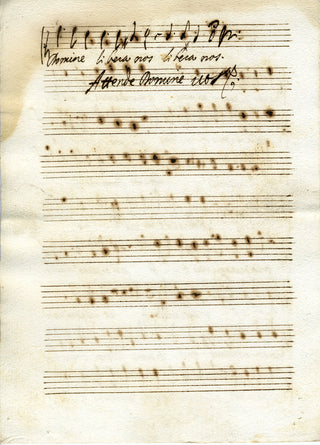 Domine libera nos libera nos.
Attende Domine